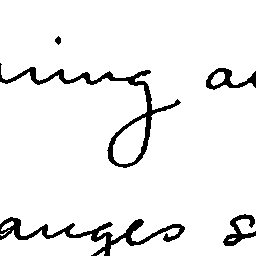 ning a
anges s